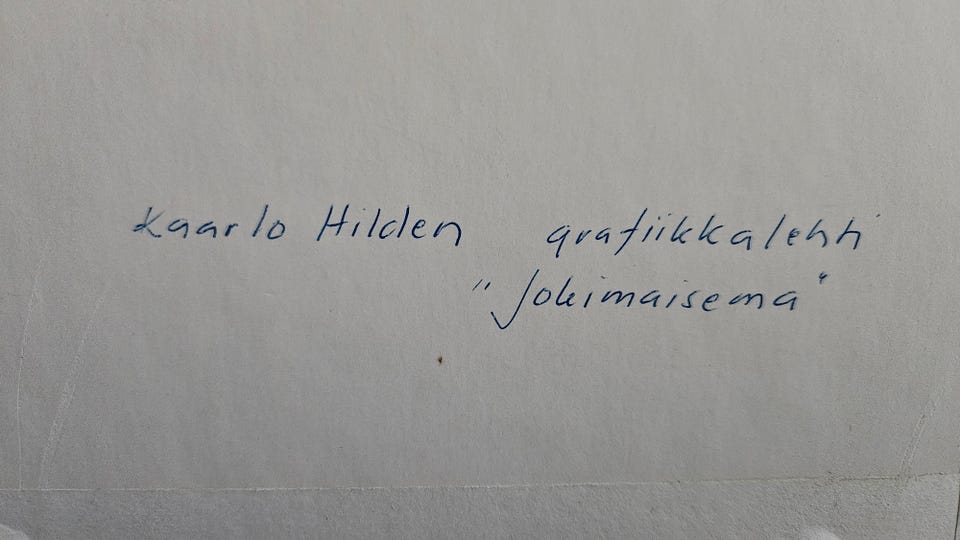 Kaarlo Hilden grafiikkalehti
"Jokimaisema"